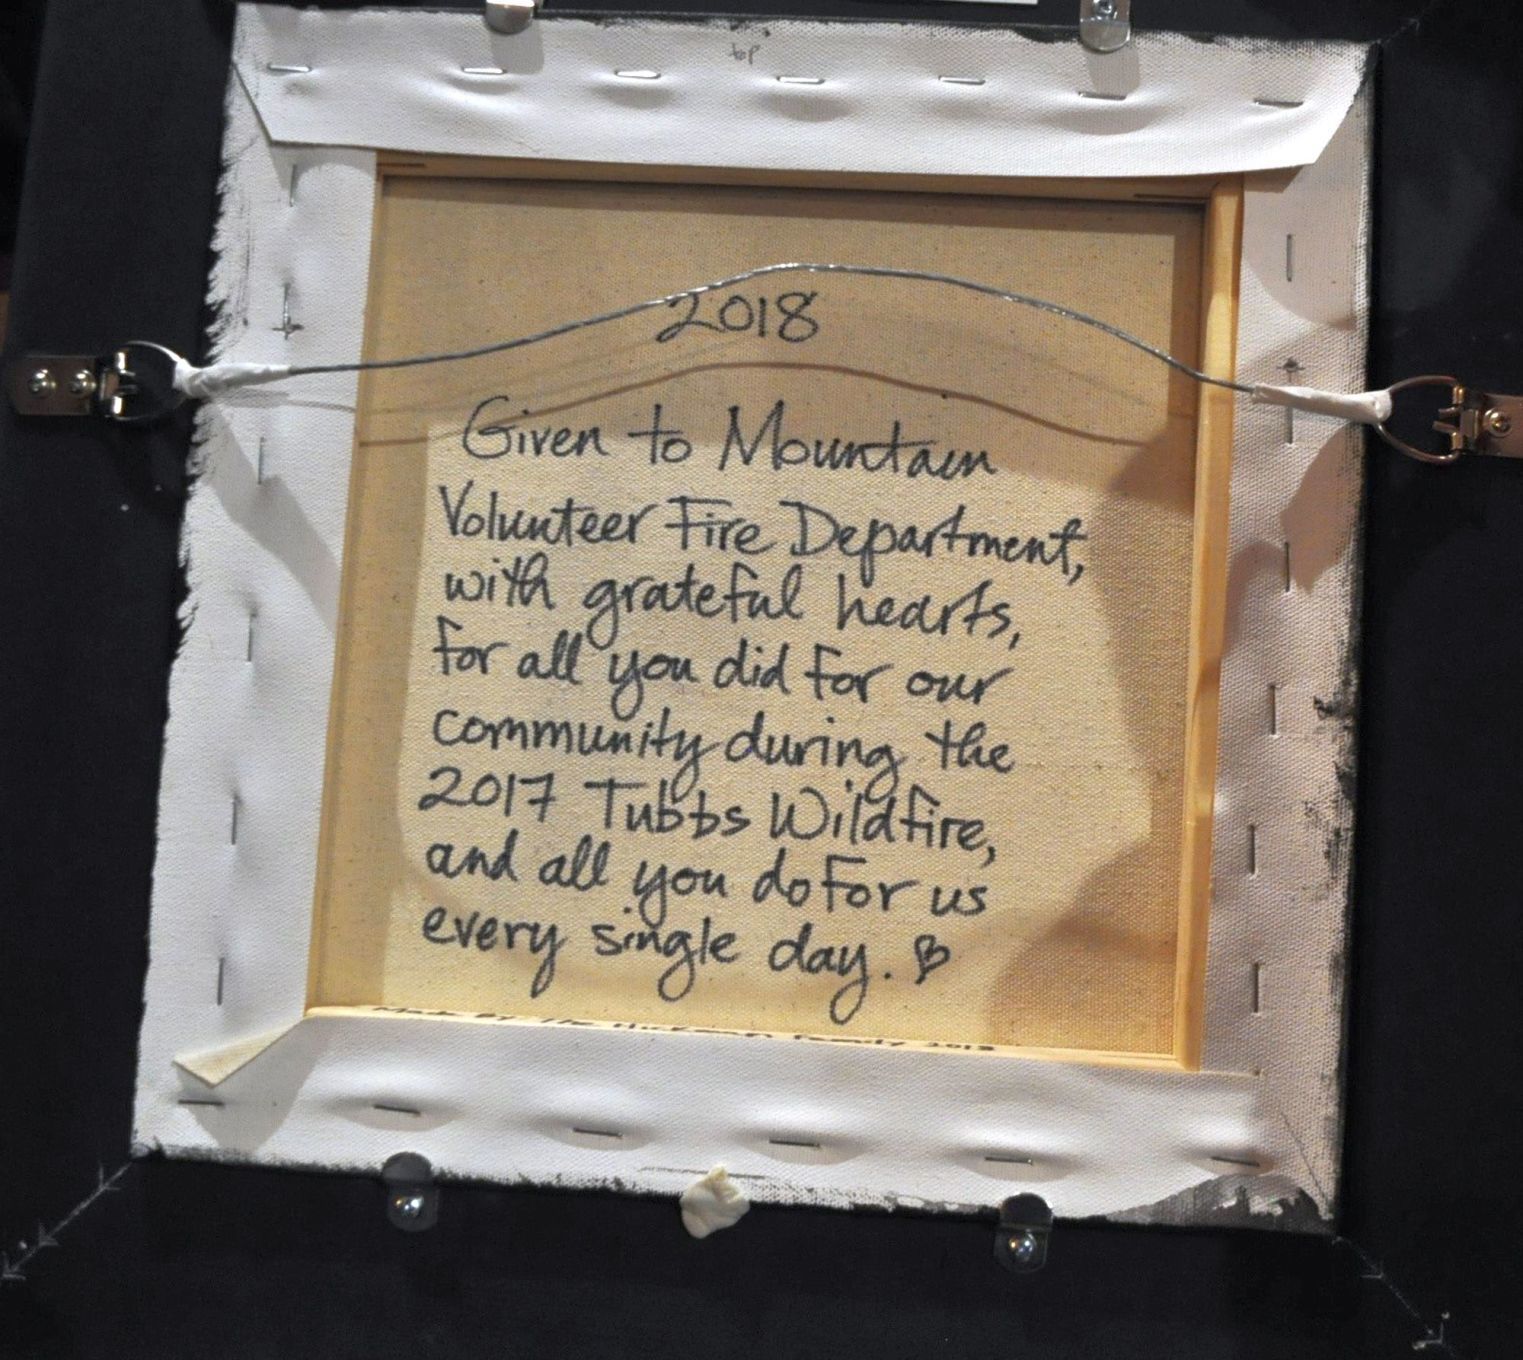 top
2018
Given to Mountain
Volunteer Fire Department,
with grateful hearts,
for all you did for our
community during the
2017 Tubbs Wildfire,
and all you do for us
every single day.
Made By The Family 2018